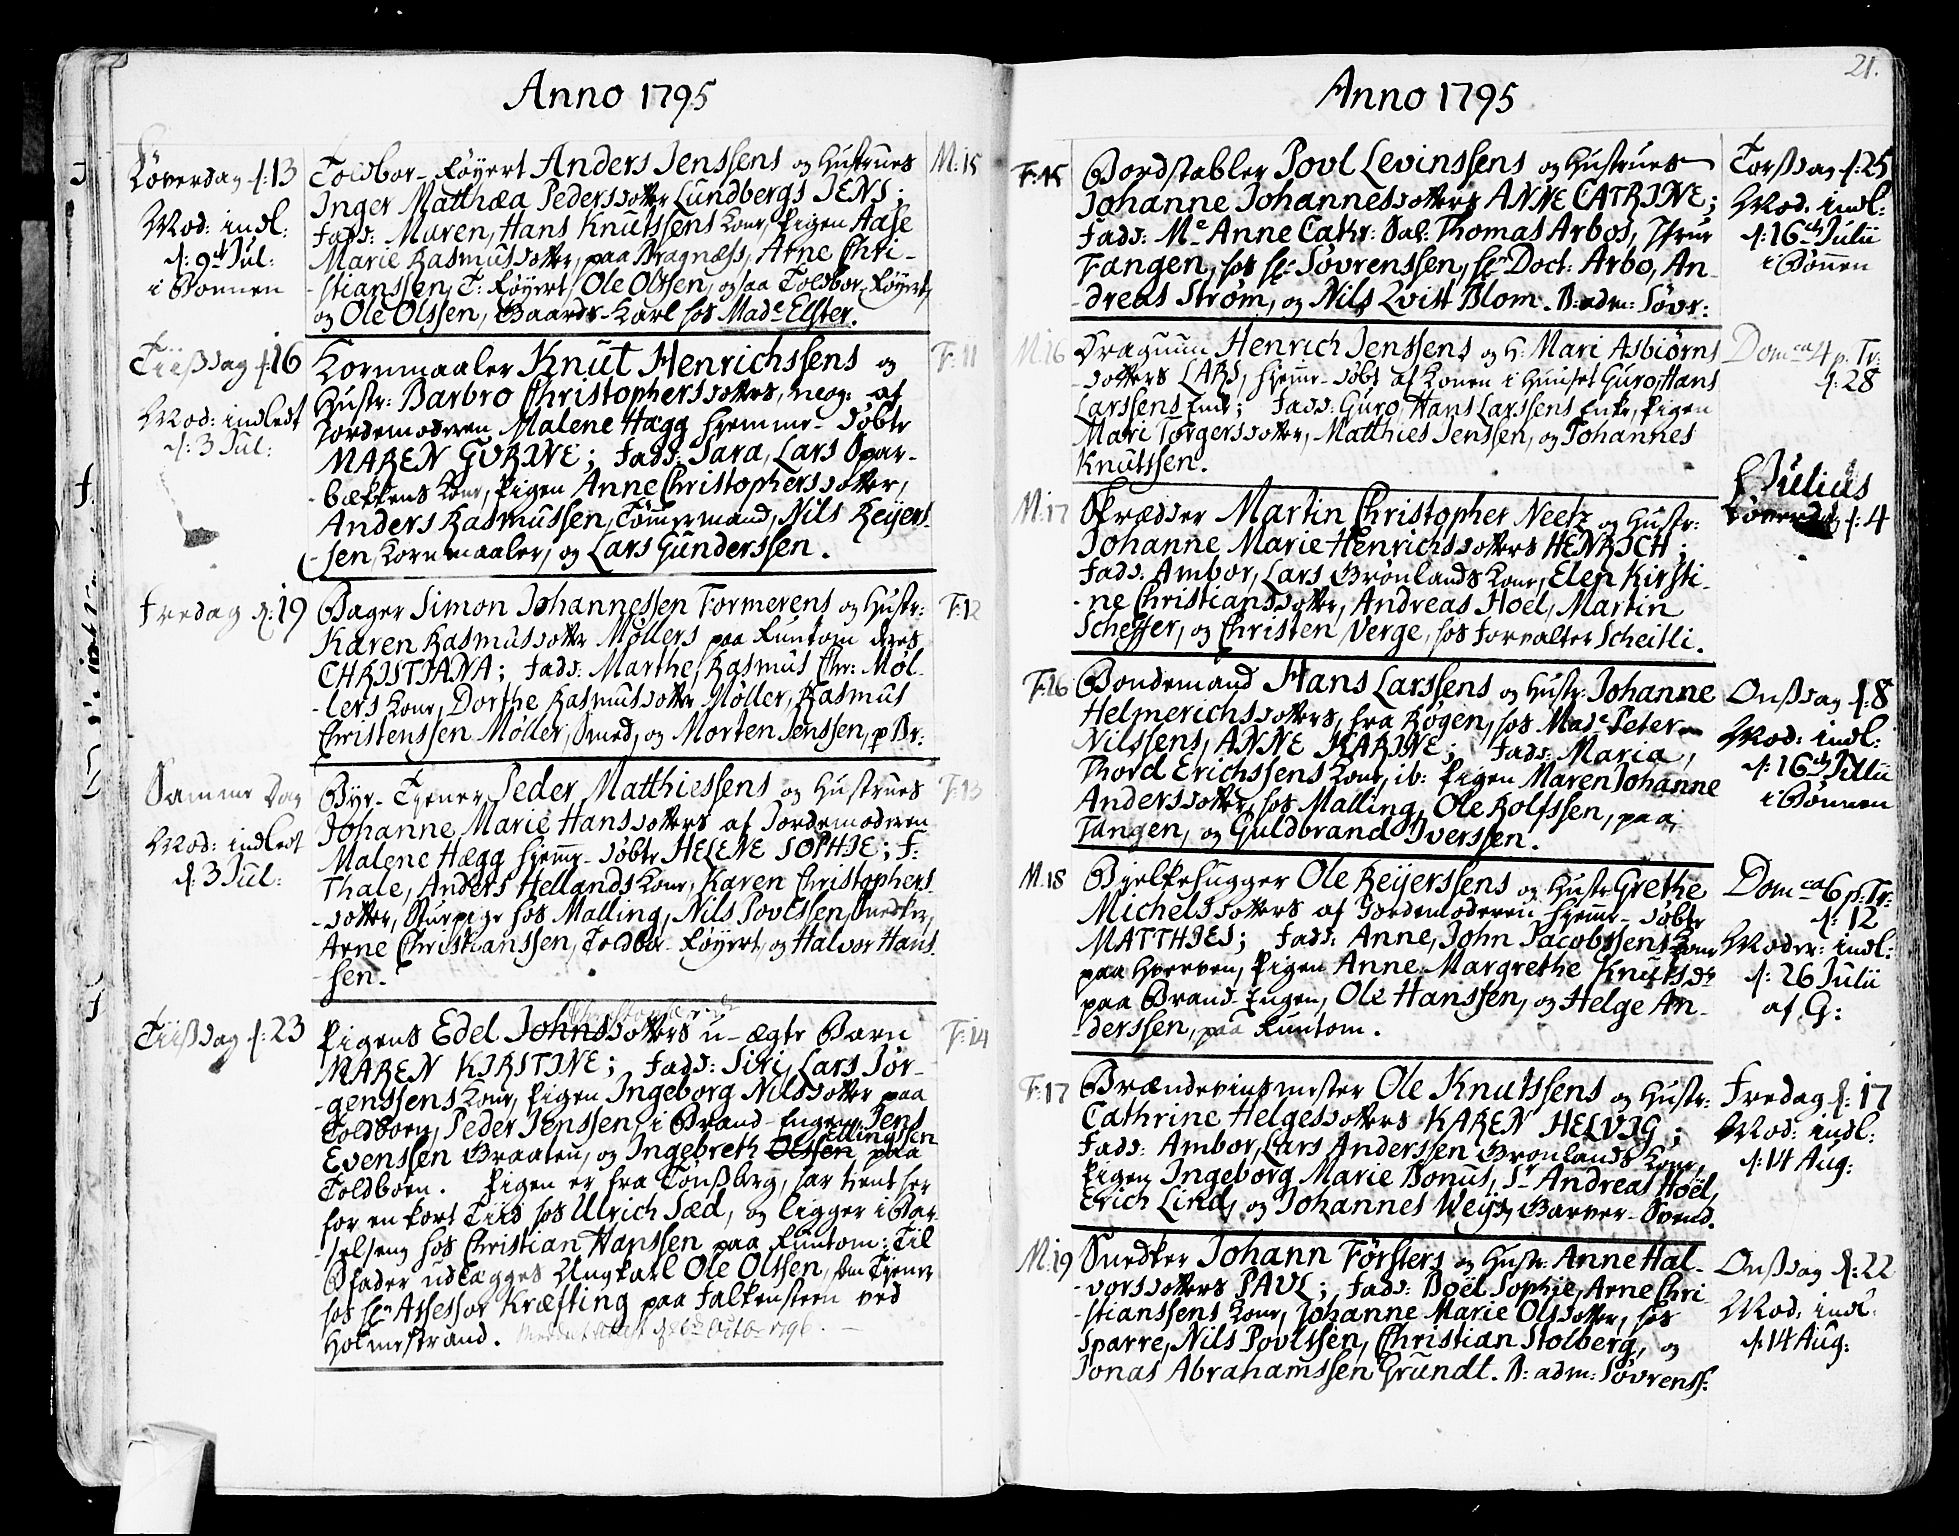 Anno 1795
Løverdag d: 13
Mod: indl:
d: 9de Jul:
i Bønnen
Toldbor-Røgert Anders Jenssens og Hustrues
Inger Matthæa Pedersdotter Lundbergs JENS;
Fadd: Maren, Hans Knutssens Kone, Pigen Aase
Marie Rasmusdotter, paa Bragnæss, Arne Chri-
-stianssen, T: Røyert, Ole Olssen, ogsaa Toldbor-Røyert,
og Ole Olssen, Gaards-Karl hos Made Elster.
M: 15
Tiissdag d: 16
Mod: indledt
d: 3 Jul:
Kornmaaler Knut Henrichssens og
Hustr: Barbro Christophersdotters, neog: af
Jordemoderen Malene Hægg hjemme-døbte
MAREN GURINE; Fadd: Sara, Lars Opar-
-bækkens Kone, Pigen Anne Christophersdotter,
Anders Rasmussen, Tømmermand, Nils Reyers-
-sen, Kornmaaler, og Lars Gunderssen.
F: 11
Fredag d: 19
Bager Simon Johannessen Formerens og Hustr:
Karen Rasmusdotter Møllers paa Tuntom deres
CHRISTIANA; Fadd: Marthe, Rasmus Chr: Møl-
-lers Kone, Dorthe Rasmusdotter Møller, Rasmus
Christenssen Møller, Smed, og Morten Jenssen, p Br:
F: 12
Samme Dag
Mod: indledt
d: 3 Jul:
Byr-Tjener Peder Matthiessens og Hustrues
Johanne Marie Hansdotters af Jordemoderen
Malene Hægg hjemme-døbte HELENE SOPHIE; F:
Thale, Anders Hellands Kone, Karen Christophers-
-dotter, Stuepige hos Malling, Nils Povlssen, Snedker,
Arne Christianssen, Toldbor-Røyert, og Halvor Hans-
-sen.
F: 13
Tiissdag d: 23
Pigens Edel Johnsdotters u-ægte Barn
MAREN KIRSTINE; Fadd: Siri, Lars Jør-
-genssens Kone, Pigen Ingeborg Nilsdotter paa
Toldboen, Peder Jenssen, i Brand-Engen, Jens
Ellingssen
Evenssen Braaten, og Ingebreth Olssen paa
Toldboen. Pigen er fra Tønssberg, har tient her
for en kort Tiid hos Ulrich Sæd, og ligger i Bar-
-selseng hos Christian Hanssen paa Tuntom: Til
Bfader udlægges Ungkarl Ole Olssen, som Tjener
hos Hr Assessor Kræfting paa Falkensteen ved
Holmestrand.
F: 14
21.
Anno 1795
F: 15
Bordstabler Povl Levinssens og Hustrues
Johanne Johannesdotters ANNE CATRINE;
Fadd: Me Anne Cathr: Sal: Thomas Arbos, Jfrue
Tangen, hos Hr Søvrenssen, Hr Doct: Arbo, An-
-dreas Strøm, og Nils Qvist Blom. B: adm: Søvr:
Torssdag d: 25
Mod. indl:
d: 16de Julii
i Bønnen
M: 16
Dragun Henrich Jenssens og H: Mari Asbiørns-
-dotters LARS, hjemme-døbt af Konen i Huuset Guro, Hans
Larssens Enke; Fadd: Guro, Hans Larssens Enke, Pigen
Mari Torgersdotter, Matthies Jenssen, og Johannes
Knutssen.
Domca 4 p. Tr:
d: 28
Julius
M: 17
Skrædder Martin Christopher Neetz og Hustr:
Johanne Marie Henrichsdotters HENRICH;
Fadd: Ambor, Lars Grønlands Kone, Elen Kirsti-
-ne Christiansdotter, Andreas Hoel, Martin
Scheffer, og Christen Verge, hos Forvalter Scheitli.
Løverdag d: 4
F: 16
Bondemand Hans Larssens og Hustr: Johanne
Helmerichsdotters, fra Røgen, hos Made Peter
Nilssens, ANNE KARINE; Fadd: Maria,
Thord Erichssens Kone, ib: Pigen Maren Johanne
Andersdotter, hos Malling, Ole Rolfssen, paa
Tangen, og Guldbrand Iverssen.
Onssdag d: 8
Mod: indl:
d: 16de Julii
i Bønnen
M: 18
Bjelkehugger Ole Reyerssens og Hustr Grethe
Michelsdotters af Jordemoderen hjemme-døbte
MATTHIES; Fadd: Anne, John Jacobssens Kone
paa Hverven, Pigen Anne Margrethe Knutsdr
paa Brand-Engen, Ole Hanssen, og Helge An-
-derssen, paa Tuntom.
Domca 6 p: Tr:
d: 12
Moder: indl:
d: 26 Julii
af G:
F: 17
Brændevinsmester Ole Knutssens og Hustr:
Cathrine Helgesdotters KAREN HELVIG;
Fadd: Ambor, Lars Anderssen Grønlands Kone,
Pigen Ingeborg Marie Bonus, Sr Andreas Høel,
Erich Lind, og Johannes Weys, Garver-Svend.
Fredag d: 17
Mod: indl:
d: 14 Aug:
M: 19
Snedker Johann Försters og Hustr: Anne Hal-
-vorsdotters PAUL; Fadd: Boël Sophie, Arne Chri-
-stianssens Kone, Johanne Marie Olsdotter, hos
Sparre, Nils Povlssen, Christian Stolberg, og
Jonas Abrahamssen Grundt. B: adm: Søvrenss:
Onssdag d: 22
Mod: indl:
d: 14 Aug: